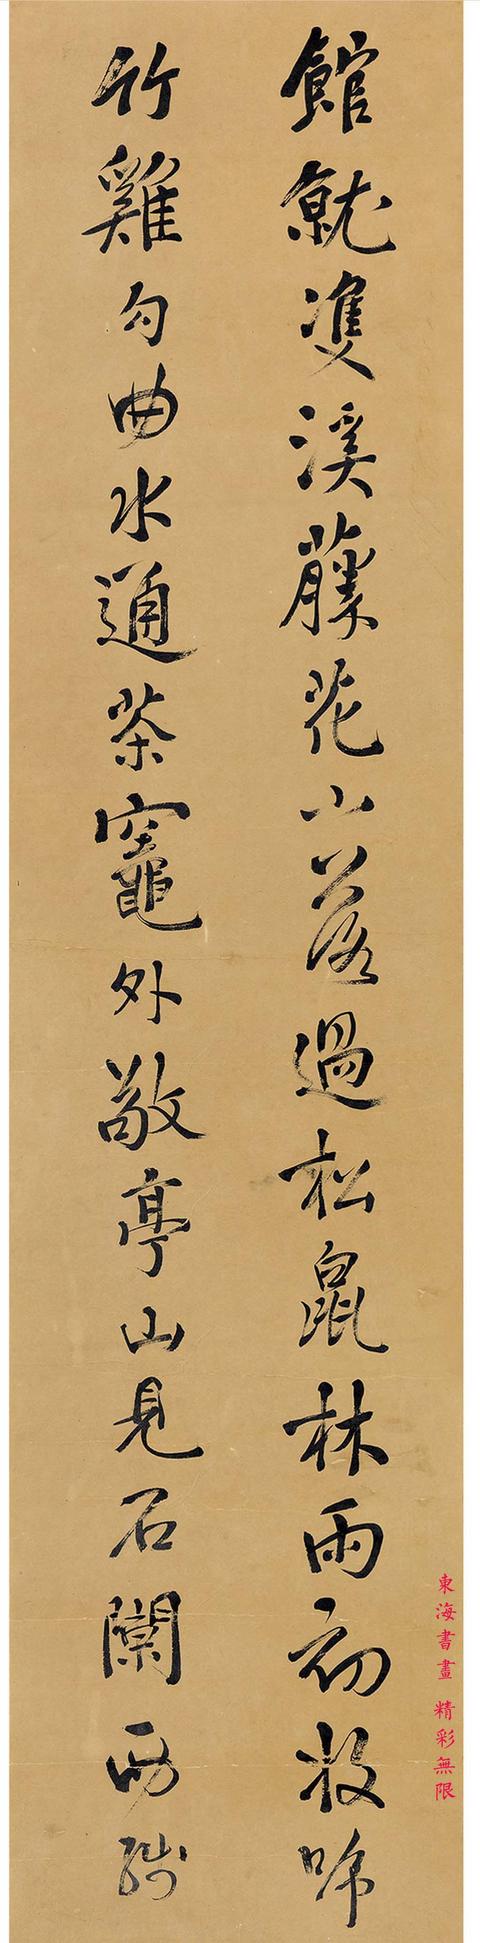 館就雙溪藤花小落過松鼠林雨初收啼
竹雞勾曲水通茶竈外敬亭山見石闌西
東海書畫 精彩無限